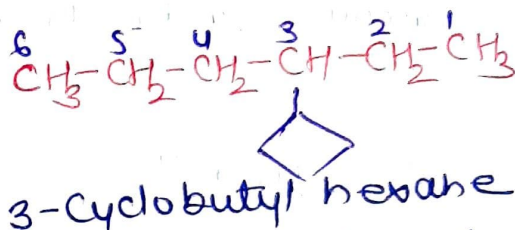 6 5 4 3 2 1
CH3-CH2-CH2-CH-CH2-CH3
3-Cyclobutyl hexane